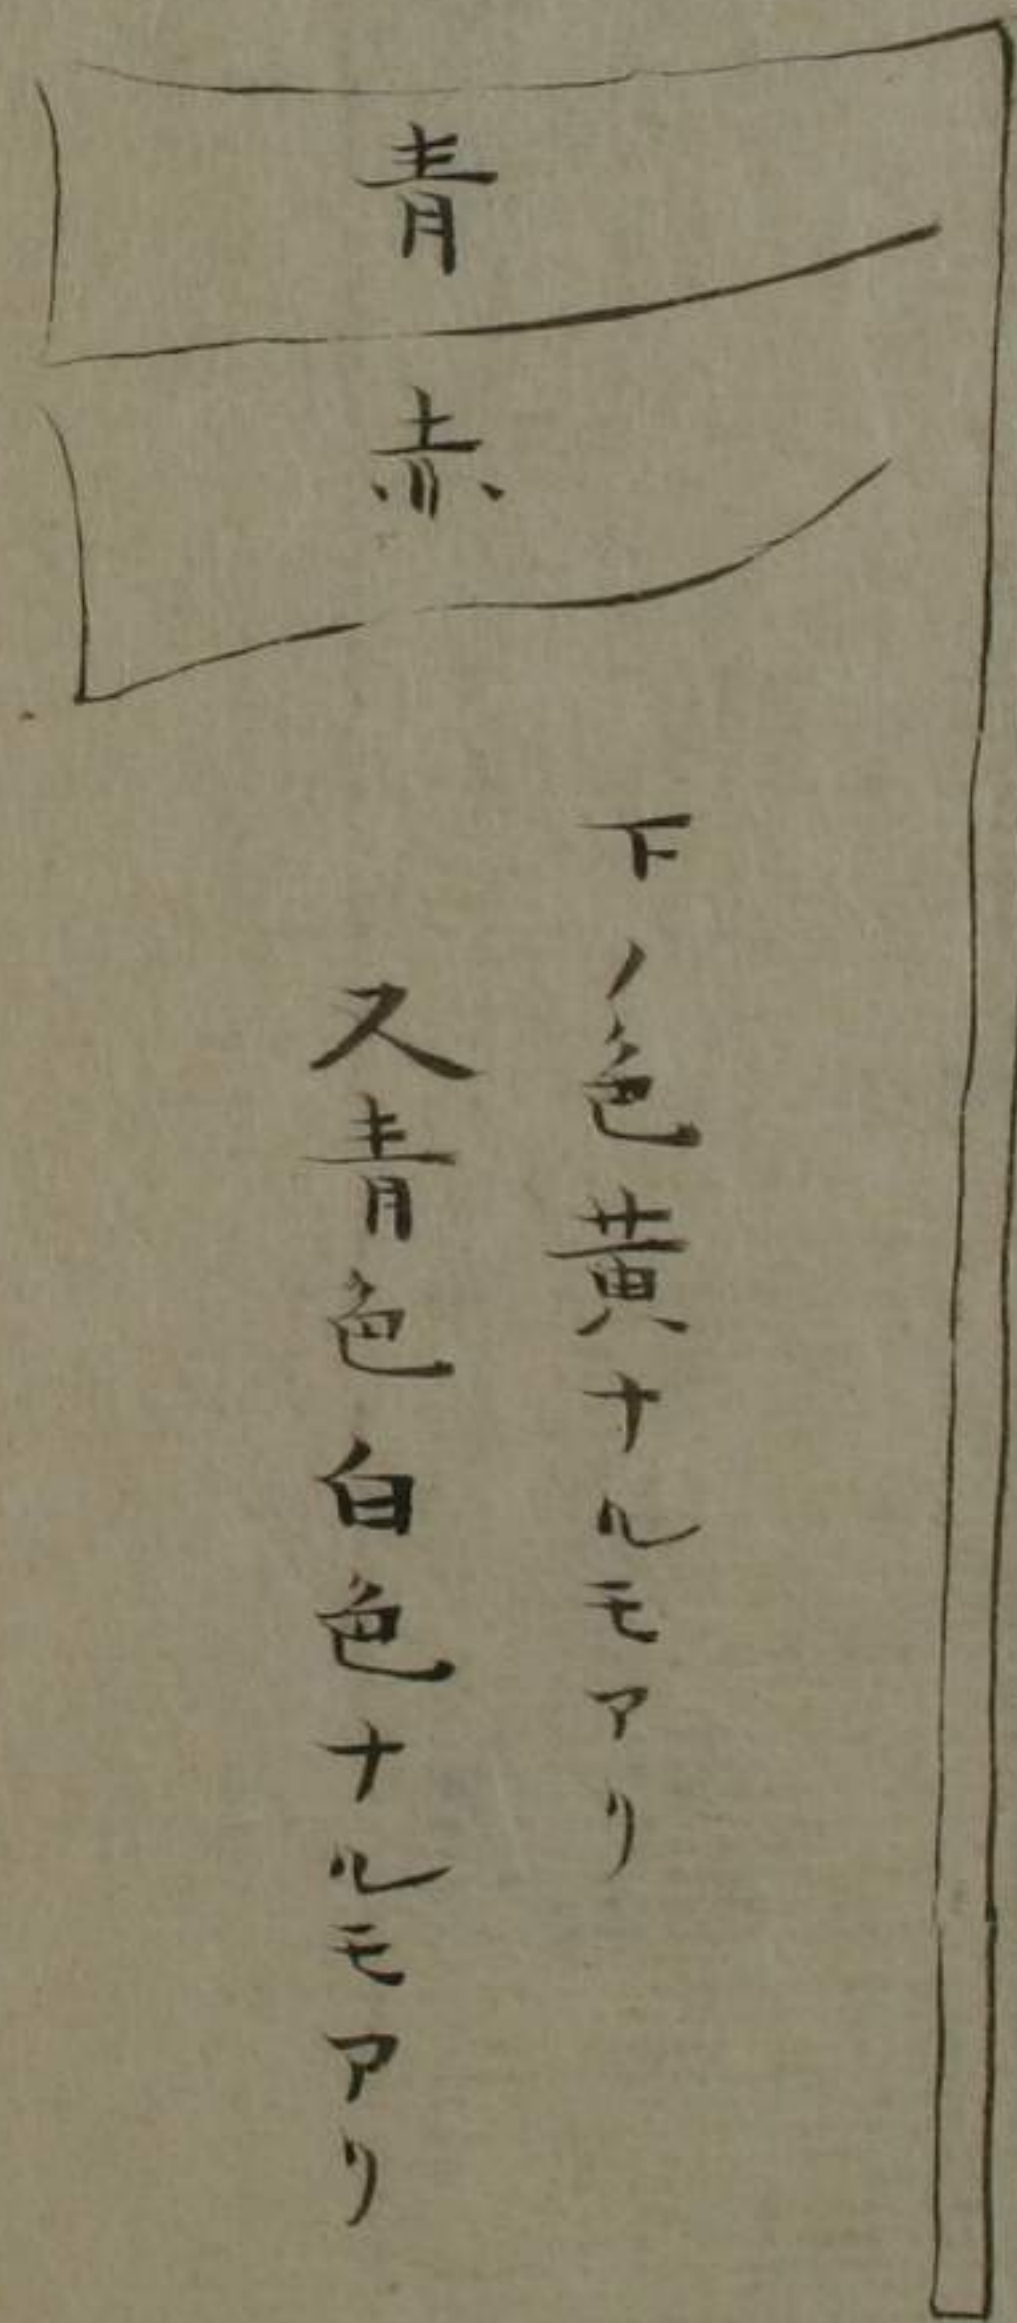 青
赤
下ノ色黄ナルモアリ
又青色白色ナルモアリ